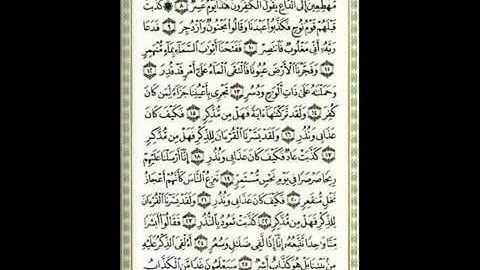 مُّهْطِعِينَ إِلَى ٱلدَّاعِ يَقُولُ ٱلْكَٰفِرُونَ هَٰذَا يَوْمٌ عَسِرٌ ٨ ۞ كَذَّبَتْ
قَبْلَهُمْ قَوْمُ نُوحٍ فَكَذَّبُوا۟ عَبْدَنَا وَقَالُوا۟ مَجْنُونٌ وَٱزْدُجِرَ ٩ فَدَعَا
رَبَّهُۥٓ أَنِّى مَغْلُوبٌ فَٱنتَصِرْ ١٠ فَفَتَحْنَآ أَبْوَٰبَ ٱلسَّمَآءِ بِمَآءٍ مُّنْهَمِرٍ
١١ وَفَجَّرْنَا ٱلْأَرْضَ عُيُونًا فَٱلْتَقَى ٱلْمَآءُ عَلَىٰٓ أَمْرٍ قَدْ قُدِرَ ١٢
وَحَمَلْنَٰهُ عَلَىٰ ذَاتِ أَلْوَٰحٍ وَدُسُرٍ ١٣ تَجْرِى بِأَعْيُنِنَا جَزَآءً لِّمَن كَانَ
كُفِرَ ١٤ وَلَقَد تَّرَكْنَٰهَآ ءَايَةً فَهَلْ مِن مُّدَّكِرٍ ١٥ فَكَيْفَ كَانَ
عَذَابِى وَنُذُرِ ١٦ وَلَقَدْ يَسَّرْنَا ٱلْقُرْءَانَ لِلذِّكْرِ فَهَلْ مِن مُّدَّكِرٍ
١٧ كَذَّبَتْ عَادٌ فَكَيْفَ كَانَ عَذَابِى وَنُذُرِ ١٨ إِنَّآ أَرْسَلْنَا عَلَيْهِمْ
رِيحًا صَرْصَرًا فِى يَوْمِ نَحْسٍ مُّسْتَمِرٍّ ١٩ تَنزِعُ ٱلنَّاسَ كَأَنَّهُمْ أَعْجَازُ
نَخْلٍ مُّنقَعِرٍ ٢٠ فَكَيْفَ كَانَ عَذَابِى وَنُذُرِ ٢١ وَلَقَدْ يَسَّرْنَا ٱلْقُرْءَانَ
لِلذِّكْرِ فَهَلْ مِن مُّدَّكِرٍ ٢٢ كَذَّبَتْ ثَمُودُ بِٱلنُّذُرِ ٢٣ فَقَالُوٓا۟ أَبَشَرًا
مِّنَّا وَٰحِدًا نَّتَّبِعُهُۥٓ إِنَّآ إِذًا لَّفِى ضَلَٰلٍ وَسُعُرٍ ٢٤ أَءُلْقِىَ ٱلذِّكْرُ عَلَيْهِ
مِنۢ بَيْنِنَا بَلْ هُوَ كَذَّابٌ أَشِرٌ ٢٥ سَيَعْلَمُونَ غَدًا مَّنِ ٱلْكَذَّابُ